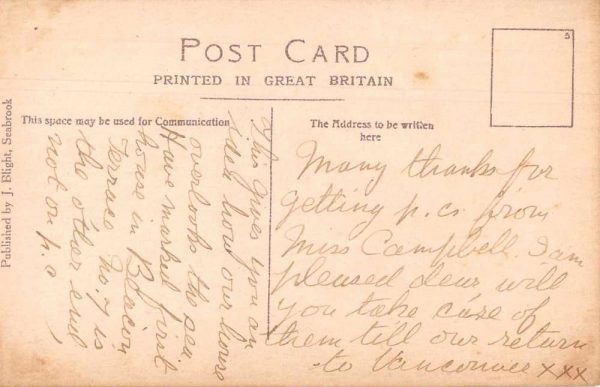 POST CARD
PRINTED IN GREAT BRITAIN
5
This space may be used for Communication
The Address to be written
here
Published by J. Blight, Seabrook
This gives you an
idea how our house
overlooks the sea.
Have marked first
house in Beacon
Terrace No. 7 is
the other end,
not on p.c
Many thanks for
getting p.cs. from
Miss Campbell. I am
pleased dear will
you take care of
them till our return
to Vancouver xxx